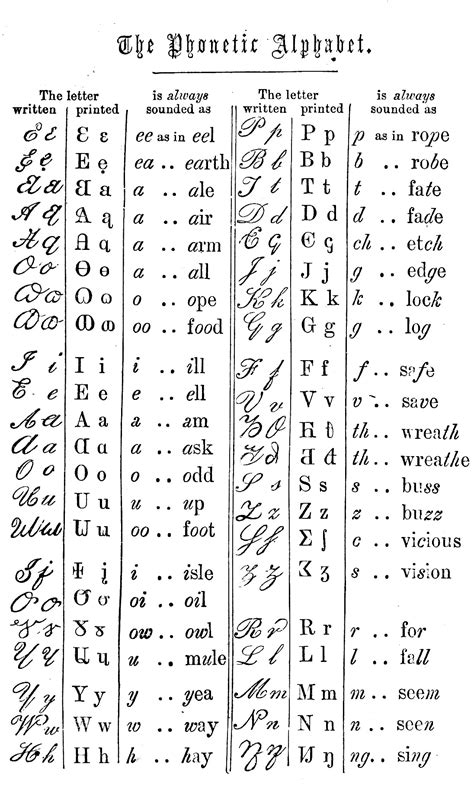 The Phonetic Alphabet.
The letter is always
written printed sounded as
Ɛ ɛ Ɛ ɛ ee as in eel
E ẹ ea .. earth
a a .. ale
Ą ą a .. air
ą a .. arm
Ɵ ɵ a .. all
o .. ope
oo .. food
I i I i i .. ill
E e E e e .. ell
A a A a a .. am
Ɑ ɑ a .. ask
O o O o o .. odd
U u U u u .. up
Ɯ ɯ oo .. foot
į i .. isle
oi .. oil
Ȣ ȣ ow .. owl
u .. mule
Y y Y y y .. yea
W w W w w .. way
H h H h h .. hay
The letter is always
written printed sounded as
P p P p p as in rope
B b B b b .. robe
T t T t t .. fate
D d D d d .. fade
ch .. etch
J j J j g .. edge
K k K k k .. lock
G g G g g .. log
F f F f f .. safe
V v V v v .. save
th .. wreath
th .. wreathe
S s S s s .. buss
Z z Z z z .. buzz
Σ ʃ c .. vicious
Ʒ ʒ s .. vision
R r R r r .. for
L l L l l .. fall
M m M m m .. seem
N n N n n .. seen
Ŋ ŋ ng .. sing